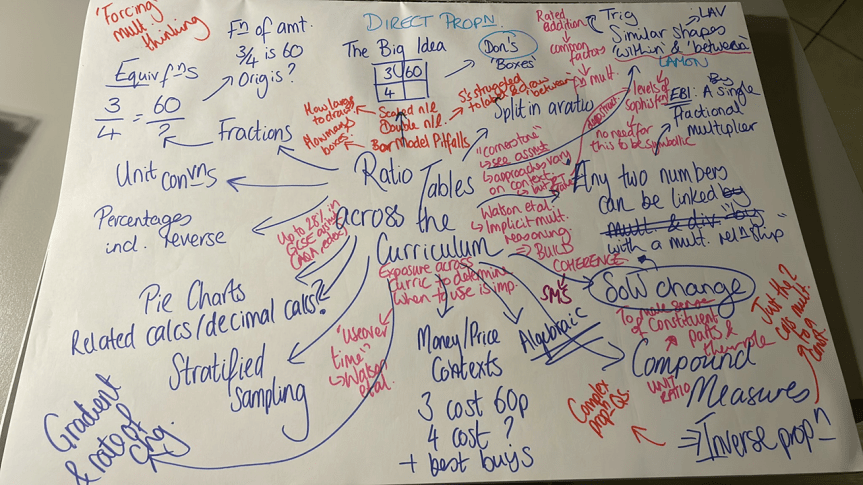 'Forcing'
mult.
thinking
Fⁿ of amt.
3/4 is 60
Orig is?
DIRECT PROPN.
The Big Idea
3 60
4
Don's
'Boxes'
Rated
addition
↳ common
factors
Trig
LAV
Similar shapes
'within' & 'between'
LAMON
Equiv fⁿs
3/4 = 60/?
Fractions
How large
to draw
How many
boxes?
Scaled n/l
Double n/l
Bar Model Pitfalls
S's struggled
to label & draw
'between'
Split in a ratio
mult.
levels of
sophistⁿ
no need for
this to be symbolic
EBI: A single
By
fractional
multiplier
Unit convⁿs
Percentages
incl. reverse
Ratio
Tables
across the
Curriculum
"cornerstone"
↳ see assist
↳ approaches vary
on context.
Watson et al:
↳ Implicit mult.
reasoning.
⇒ BUILD
COHERENCE
Any two numbers
can be linked by
mult. & div. "by
with a mult. relⁿship"
Up to 28% in
GCSE
Exposure across
Curric to determine
when to use is imp.
SMS
SoW change
To make sense
of Constituent
parts &
the whole
Pie Charts
Related calcs/decimal calcs?
Stratified
sampling
"use over
time"
↳ Watson
et al.
Gradient
& rate of
chg.
Money/Price
Contexts
3 cost 60p
4 cost ?
+ best buys
Algebraic
Compound
Measures
UNIT
RATIO
Complex
propⁿ Qs
⇒ Inverse propⁿ